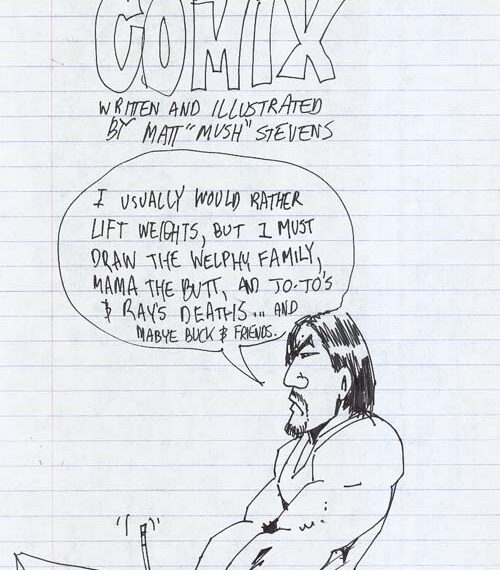 COMIX
WRITTEN AND ILLUSTRATED
BY MATT "MUSH" STEVENS
I USUALLY WOULD RATHER
LIFT WEIGHTS, BUT I MUST
DRAW THE WELPHY FAMILY,
MAMA THE BUTT, AND JO-JO'S
& RAY'S DEATHS... AND
MABYE BUCK & FRIENDS.